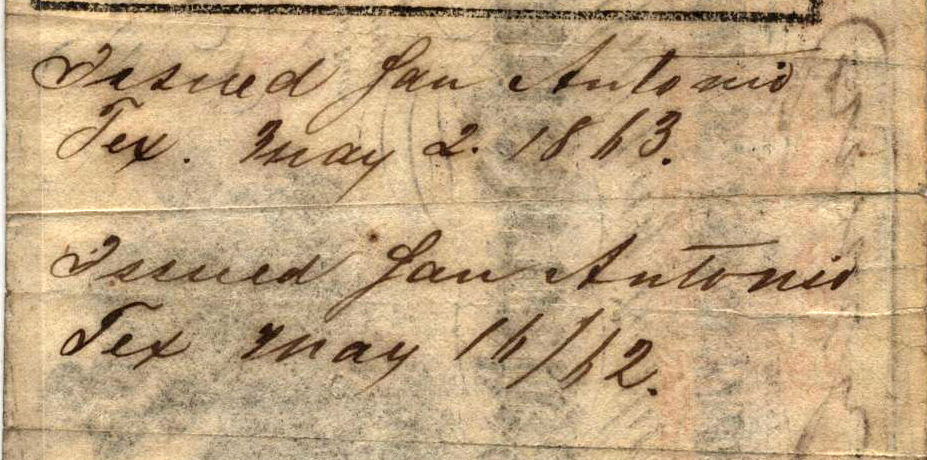 Issued San Antonio
Tex. May 2. 1863.
Issued San Antonio
Tex May 16/62.